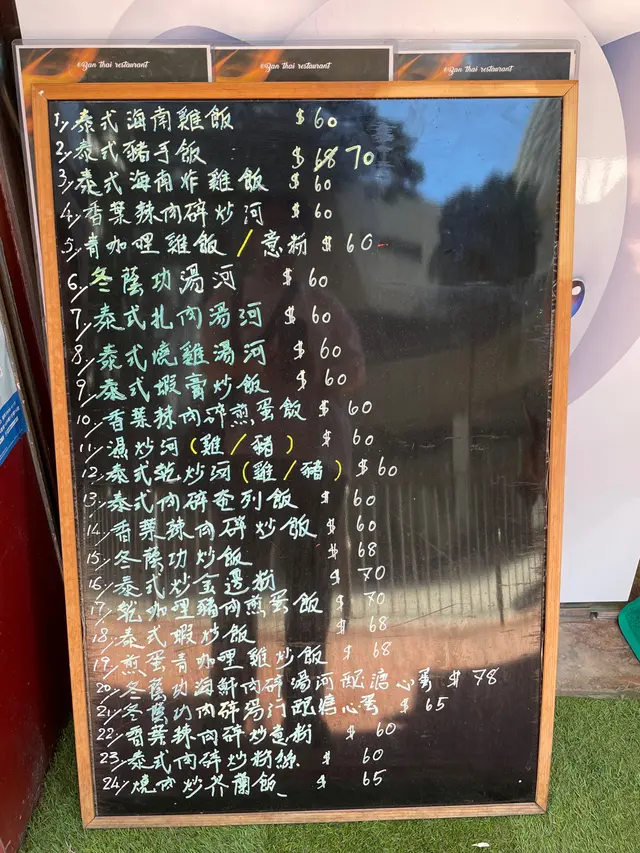 @Ban thai restaurant @Ban thai restaurant @Ban thai restaurant
1/ 泰式海南雞飯 $60
2/ 泰式豬手飯 $68 70
3/ 泰式海南炸雞飯 $60
4/ 香葉辣肉碎炒河 $60
5/ 青咖哩雞飯/意粉 $60
6/ 冬蔭功湯河 $60
7/ 泰式扎肉湯河 $60
8/ 泰式燒雞湯河 $60
9/ 泰式蝦膏炒飯 $60
10/ 香葉辣肉碎煎蛋飯 $60
11/ 濕炒河(雞/豬) $60
12/ 泰式乾炒河(雞/豬) $60
13/ 泰式肉碎奄列飯 $60
14/ 香葉辣肉碎炒飯 $60
15/ 冬蔭功炒飯 $68
16/ 泰式炒金邊粉 $70
17/ 乾咖哩豬肉煎蛋飯 $70
18/ 泰式蝦炒飯 $68
19/ 煎蛋青咖哩雞炒飯 $68
20/ 冬蔭功海鮮肉碎湯河配溏心蛋 $78
21/ 冬蔭功肉碎湯河配溏心蛋 $65
22/ 香葉辣肉碎炒意粉 $60
23/ 泰式肉碎炒粉絲 $60
24/ 燒肉炒芥蘭飯 $65